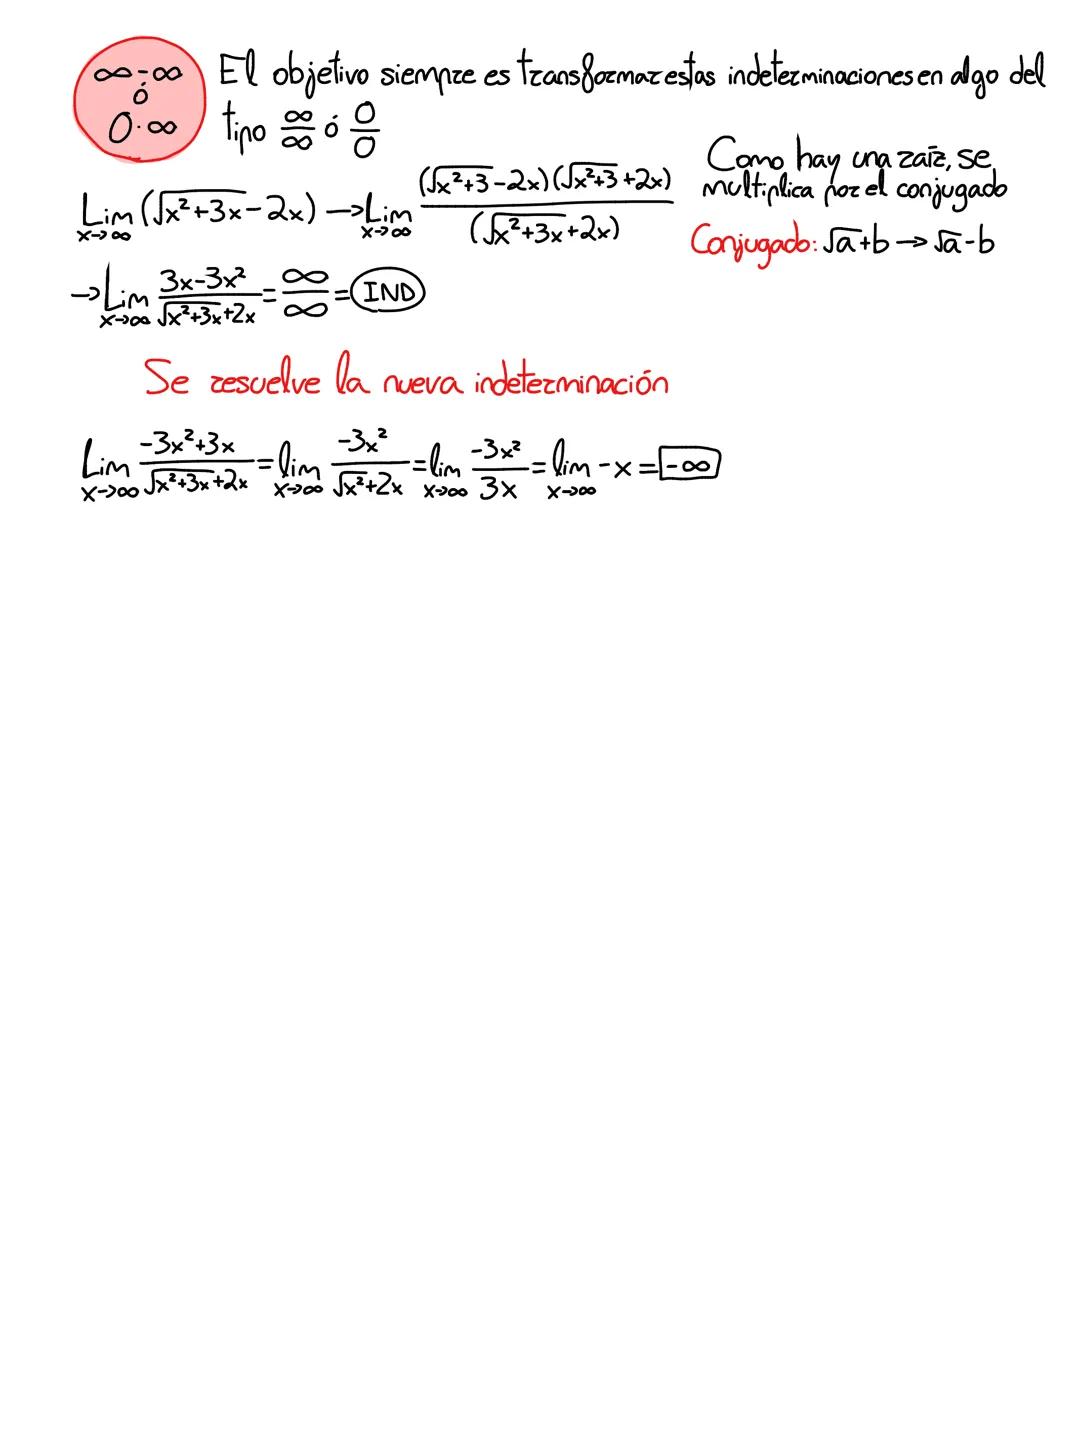 ∞-∞
ó
0·∞
El objetivo siempre es transformar estas indeterminaciones en algo del
tipo ∞/∞ ó 0/0
Como hay una raíz, se
multiplica por el conjugado
Conjugado: √a+b → √a-b
Lim x→∞ (√(x²+3x)-2x) → Lim x→∞ (√(x²+3)-2x)(√(x²+3)+2x) / (√(x²+3x)+2x)
→ Lim x→∞ (3x-3x²)/(√(x²+3x)+2x) = ∞/∞ = IND
Se resuelve la nueva indeterminación
Lim x→∞ (-3x²+3x)/(√(x²+3x)+2x) = lim x→∞ (-3x²)/(√(x²)+2x) = lim x→∞ (-3x²)/(3x) = lim x→∞ -x = -∞